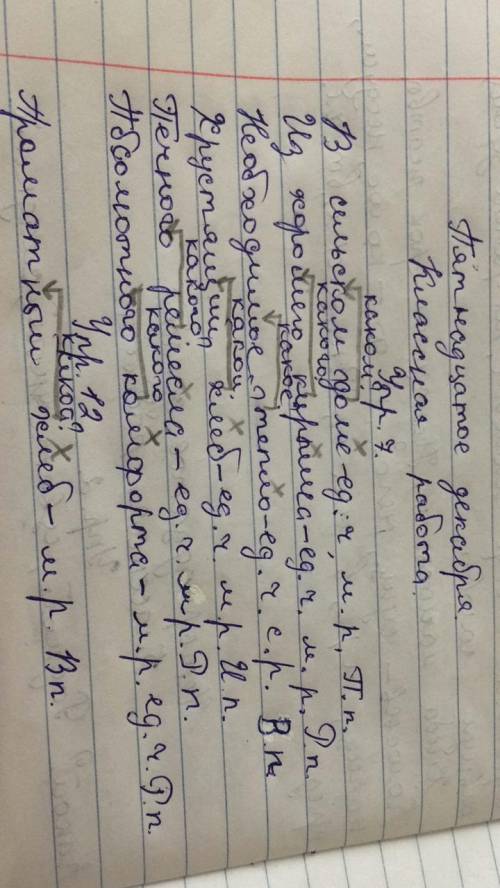 Пятнадцатое декабря.
Классная работа.
Упр. 7.
каком?
В сельском доме-ед. ч, м. р, П. п,
какого?
Из хорошего кирпича-ед. ч. м. р, Р. п.
какое?
Необходимое тепло-ед. ч. с. р. В. п.
какой?
Хрустящий хлеб-ед. ч. м р. И. п.
какого
Печного ремесла-ед. ч. м р. Р. п.
какого
Абсолютного комфорта-м. р. ед. ч. Р. п.
Упр. 12
какой?
Ароматный хлеб-м. р. В п.